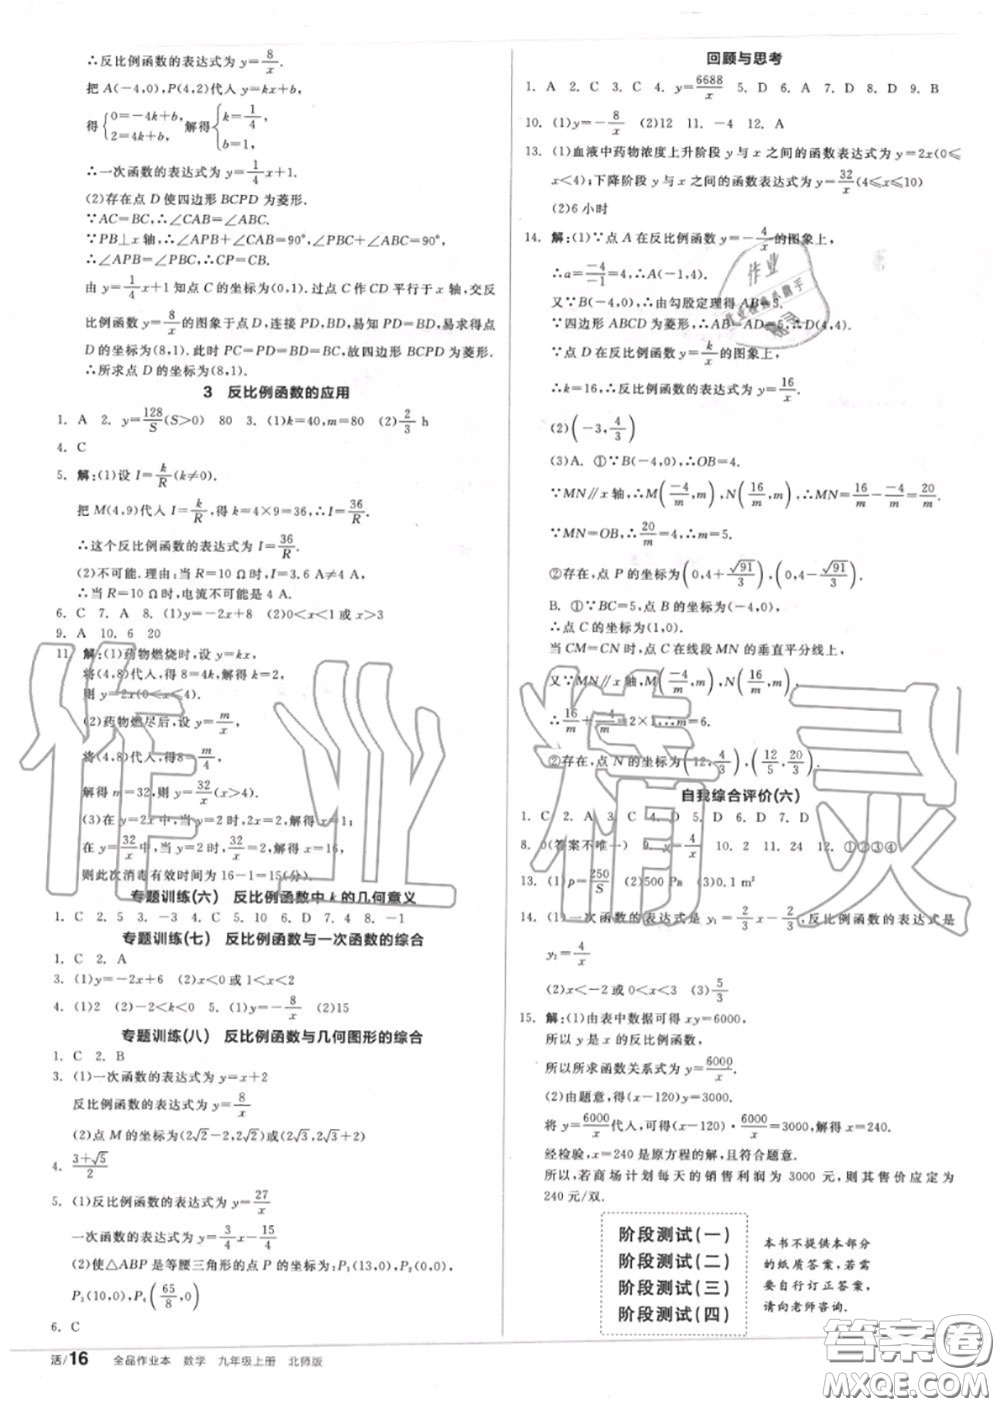 ∴反比例函数的表达式为 y=8/x.
把 A(-4,0),P(4,2)代入 y=kx+b,
得{0=-4k+b, 2=4k+b, 解得{k=1/4, b=1,
∴一次函数的表达式为 y=1/4x+1.
(2)存在点 D 使四边形 BCPD 为菱形.
∵AC=BC,∴∠CAB=∠ABC.
∵PB⊥x 轴,∴∠APB+∠CAB=90°,∠PBC+∠ABC=90°,
∴∠APB=∠PBC,∴CP=CB.
由 y=1/4x+1 知点 C(0,1).过点 C 作 CD 平行于 x 轴,交反
比例函数 y=8/x的图象于点 D,连接 PD,BD,易知 PD=BD,易求得点
D 的坐标为(8,1).此时 PC=PD=BC=BD,故四边形 BCPD 为菱形.
∴所求点 D 的坐标为(8,1).
3 反比例函数的应用
1. A 2. y=128/S(S>0) 80 3. (1)k=40,m=80 (2)2/3 h
4. C
5. 解:(1)设 I=k/R(k≠0).
把 M(4,9)代入 I=k/R,得 k=4×9=36,∴I=36/R.
∴这个反比例函数的表达式为 I=36/R.
(2)不可能. 理由:当 R=10 Ω时,I=3.6 A≠4 A.
∴当 R=10 Ω时,电流不可能是 4 A.
6. C 7. A 8. (1)y=-2x+8 (2)0<x<1 或 x>3
9. A 10. 6 20
11. 解:(1)药物燃烧时,设 y=kx,
将(4,8)代入,得 8=4k,解得 k=2,
则 y=2x(0<x≤4).
(2)药物燃尽后,设 y=m/x,
将(4,8)代入,得 8=m/4,
解得 m=32,则 y=32/x(x>4).
(3)在 y=2x 中,当 y=2时,2x=2,解得 x=1;
在 y=32/x中,当 y=2时,32/x=2,解得 x=16.
则此次消毒有效时间为 16-1=15(分).
专题训练(六) 反比例函数中 k 的几何意义
1. C 2. 5 3. -3 4. C 5. 10 6. D 7. 4 8. -1
专题训练(七) 反比例函数与一次函数的综合
1. C 2. A
3. (1)y=-2x+6 (2)x<0 或 1<x<2
4. (1)2 (2)-2<k<0 5. (1)y=-8/x (2)15
专题训练(八) 反比例函数与几何图形的综合
1. C 2. B
3. (1)一次函数的表达式为 y=x+2
反比例函数的表达式为 y=8/x
(2)点 M 的坐标为(2√2-2,2√2)或(2√3,2√3+2)
4. (3+√5)/2
5. (1)反比例函数的表达式为 y=27/x
一次函数的表达式为 y=3/4x-15/4
(2)使△ABP 是等腰三角形的点 P 的坐标为:P₁(13,0),P₂(-3,0),
P₃(10,0),P₄(65/8,0)
6. C
活/16 全品作业本 数学 九年级上册 北师版
回顾与思考
1. A 2. C 3. C 4. y=6688/x 5. D 6. A 7. D 8. D 9. B
10. (1)y=-8/x (2)12 11. -4 12. A
13. (1)血液中药物浓度上升阶段 y 与 x 之间的函数表达式为 y=2x(0≤
x<4);下降阶段 y 与 x 之间的函数表达式为 y=32/x(4≤x≤10)
(2)6 小时
14. 解:(1)∵点 A 在反比例函数 y=-4/x的图象上,
∴a=-4/-4=1,∴A(-1,4).
又∵B(-4,0),∴由勾股定理得 AB=5.
∵四边形 ABCD 为菱形,∴AB=AD=5,∴D(4,4).
∵点 D 在反比例函数 y=k/x的图象上,
∴k=16,∴反比例函数的表达式为 y=16/x.
(2)(-3,4/3)
(3)A. ①∵B(-4,0),∴OB=4.
∵MN∥x 轴,∴M(-4/m,m),N(16/m,m),∴MN=16/m--4/m=20/m.
∵MN=OB,∴20/m=4,∴m=5.
②存在,点 P 的坐标为(0,4+√91/3),(0,4-√91/3).
B. ①∵BC=5,点 B 的坐标为(-4,0),
∴点 C 的坐标为(1,0).
当 CM=CN时,点 C 在线段 MN 的垂直平分线上,
又∵MN∥x 轴,M(-4/m,m),N(16/m,m),
∴16/m+-4/m=2×1,∴m=6.
②存在,点 N 的坐标为(12,4/3),(12/5,20/3)
自我综合评价(六)
1. C 2. A 3. C 4. D 5. D 6. D 7. D
8. 0(答案不唯一) 9. y=4/x 10. 2 11. 24 12. ①②③④
13. (1)p=250/S (2)500 Pa (3)0.1 m²
14. (1)一次函数的表达式是 y₁=2/3x-2/3,反比例函数的表达式是
y₂=4/x
(2)x<-2 或 0<x<3 (3)5/3
15. 解:(1)由表中数据可得 xy=6000,
所以 y 是 x 的反比例函数,
所以所求函数关系式为 y=6000/x.
(2)由题意,得(x-120)y=3000.
将 y=6000/x代入,可得(x-120)·6000/x=3000,解得 x=240.
经检验,x=240 是原方程的解,且符合题意.
所以,若商场计划每天的销售利润为 3000 元,则其售价应定为
240 元/双.
阶段测试(一)
阶段测试(二)
阶段测试(三)
阶段测试(四)
本书不提供本部分
的纸质答案,若需
要自行订正答案,
请向老师咨询.
作业精灵
答案圈
MXQE.COM